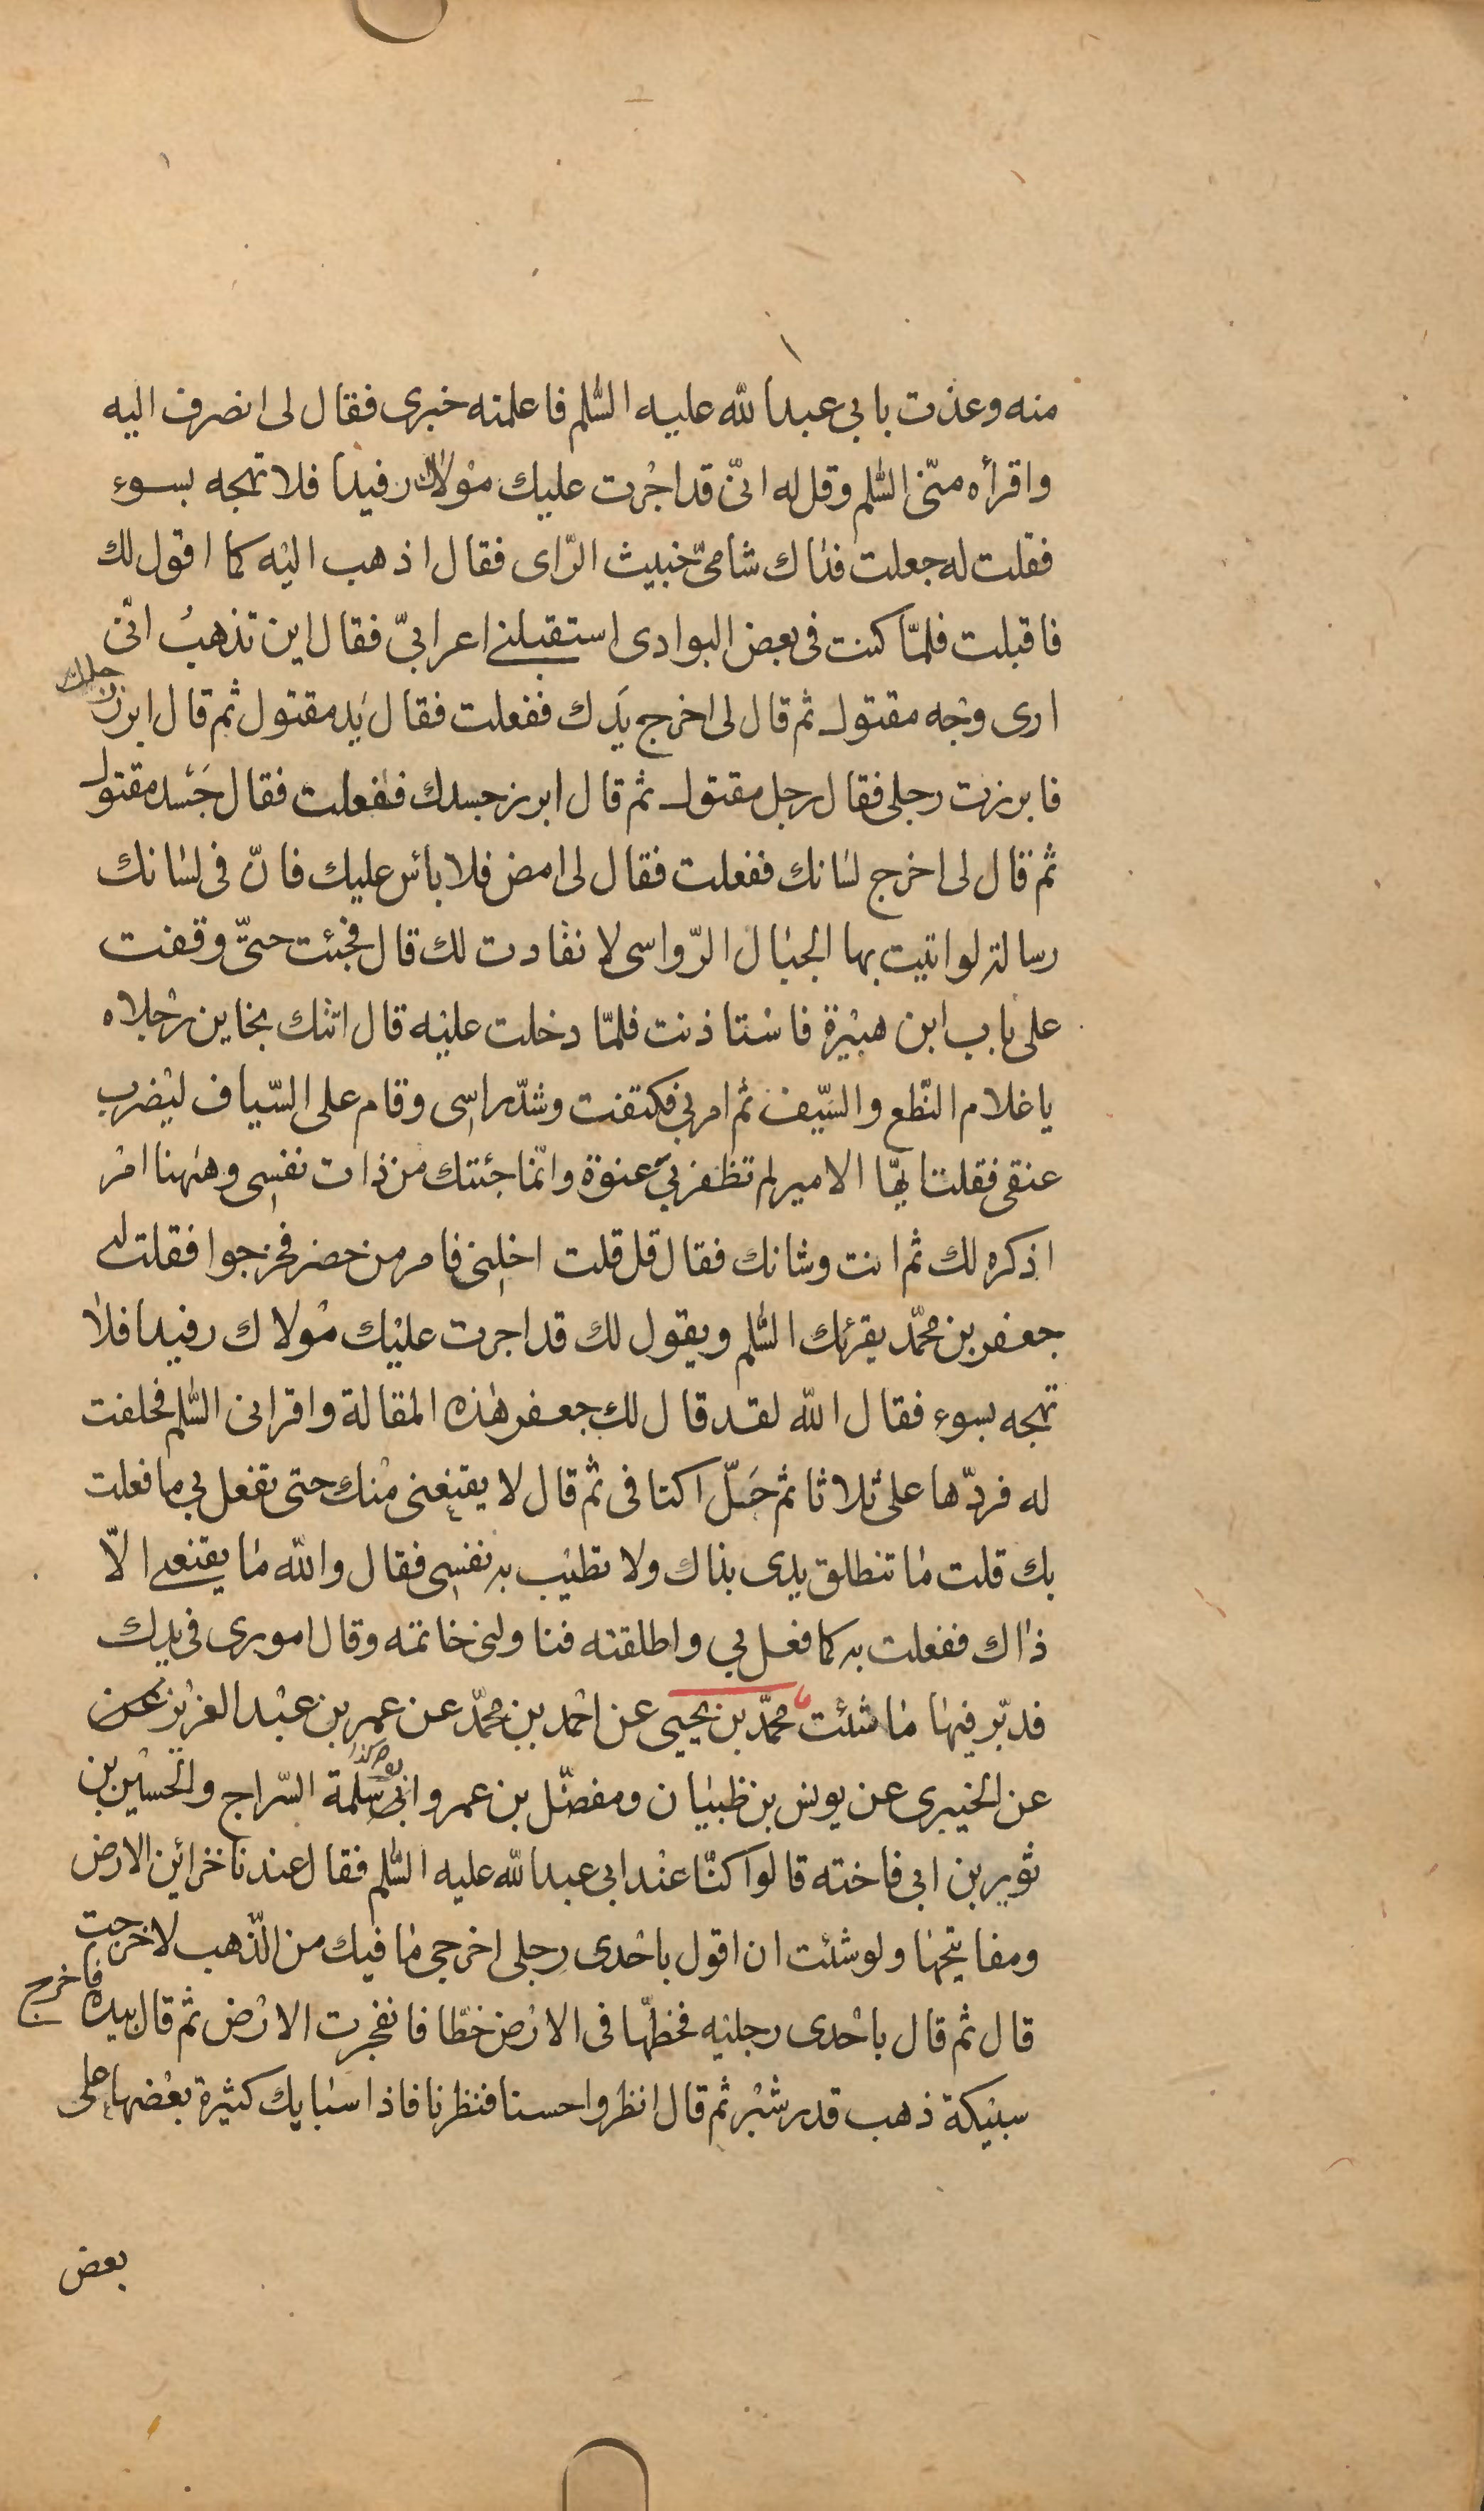 منه وعذت بابي عبد الله عليه السّلم فاعلمته خبرى فقال لى انصرف اليه
واقرأه منّى السّلم وقل له انّى قد اجرت عليك مولاك رفيدا فلا تهجه بسوء
فقلت له جعلت فداك شامىّ خبيث الرّاى فقال اذهب اليه كما اقول لك
فاقبلت فلمّا كنت فى بعض البوادى استقبلنى اعرابىّ فقال اين تذهب انّى
ارى وجه مقتول ثم قال لى اخرج يدك ففعلت فقال يد مقتول ثم قال ابرز رجلك
فابرزت رجلى فقال رجل مقتول ثم قال ابرز جسدك ففعلت فقال جسد مقتول
ثم قال لى اخرج لسانك ففعلت فقال لى امض فلا بائس عليك فانّ فى لسانك
رسالة لو اتيت بها الجبال الرّواسى لانقادت لك قال فجئت حتّى وقفت
على باب ابن هبيرة فاستاذنت فلمّا دخلت عليه قال اتتك بخاين رجلاه
يا غلام النّطع والسّيف ثم امر بى فكتفت وشدّ راسى وقام على السّياف ليضرب
عنقى فقلت ايّها الامير لم تظفر بى عنوة وانّما جئتك من ذات نفسى وههنا امر
اذكره لك ثم انت وشانك فقال قل قلت اخلنى فامر من حضر فخرجوا فقلت له
جعفر بن محمّد يقرئك السّلم ويقول لك قد اجرت عليك مولاك رفيدا فلا
تهجه بسوء فقال الله لقد قال لك جعفر هذه المقالة واقرانى السّلم فحلفت
له فردّها على ثلاثا ثم حلّ اكتافى ثم قال لا يقنعنى منك حتى تفعل بى ما فعلت
بك قلت ما تنطلق يدى بذاك ولا تطيب به نفسى فقال والله ما يقنعنى الاّ
ذاك ففعلت به كما فعل بى واطلقته فناولنى خاتمه وقال امورى فى يدك
فدبّر فيها ما شئت محمّد بن يحيى عن احمد بن محمّد عن عمر بن عبد العزيز عن
عن الخيبرى عن يونس بن ظبيان ومفضّل بن عمر وابى سلمة السّراج والحسين بن
ثوير بن ابى فاخته قالوا كنّا عند ابى عبد الله عليه السّلم فقال عندنا خزائن الارض
ومفاتيحها ولو شئت ان اقول باحدى رجلى اخرجى ما فيك من الذّهب لاخرجت
قال ثم قال باحدى رجليه فخطّها فى الارض خطّا فانفجرت الارض ثم قال بيده فاخرج
سبيكة ذهب قدر شبر ثم قال انظروا حسنا فنظرنا فاذا سبايك كثيرة بعضها على
بعض